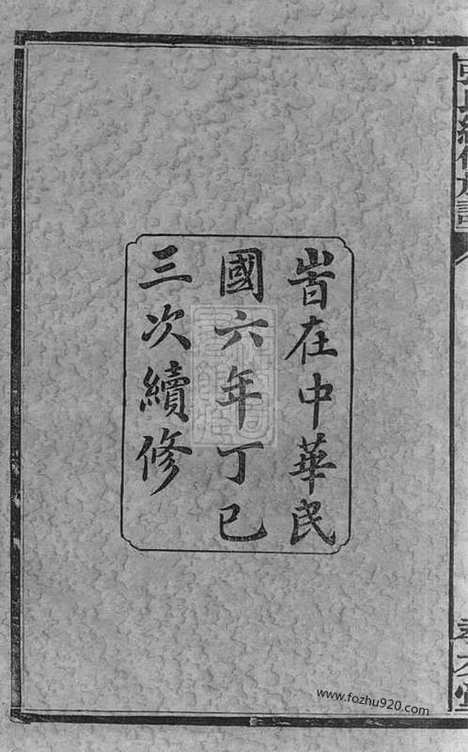 旹在中華民
國六年丁巳
三次續修
www.fozhu920.com